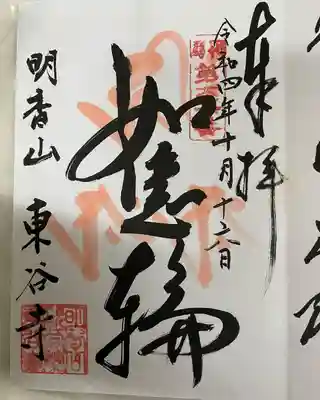 奉拝
令和四年十月十六日
如意輪
明香山 東谷寺